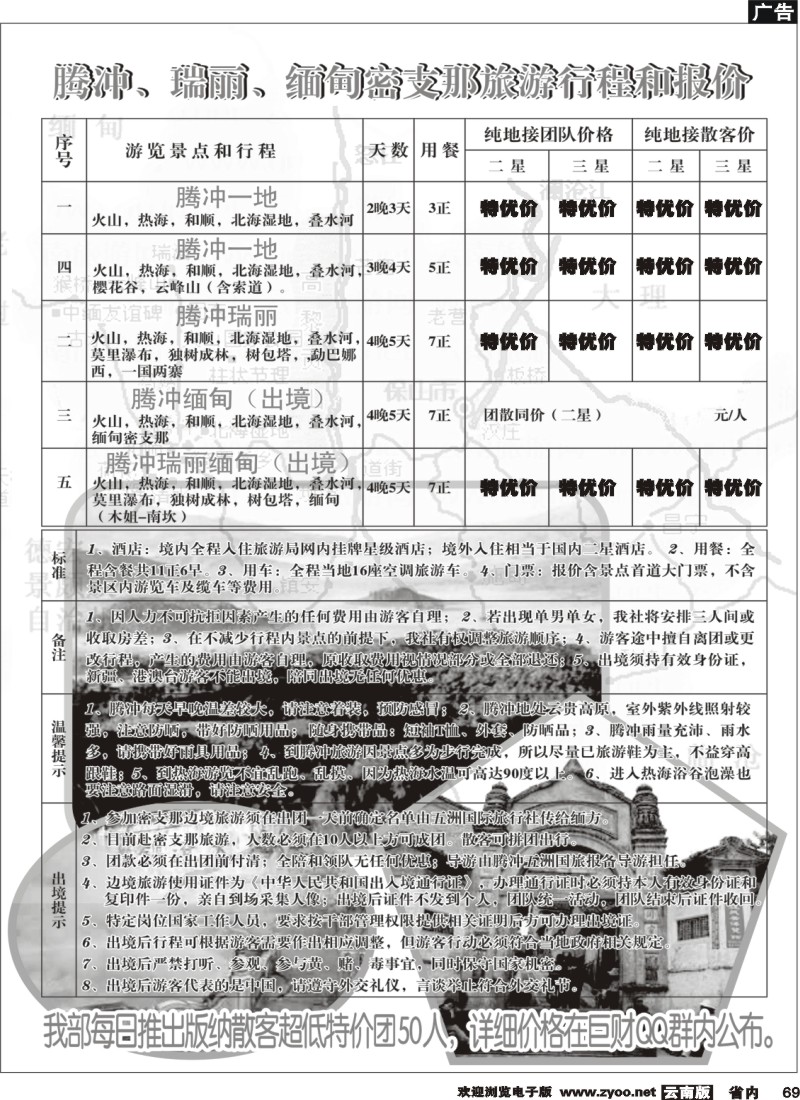 广告
腾冲、瑞丽、缅甸密支那旅游行程和报价
序号 游览景点和行程 天数 用餐 纯地接团队价格 纯地接散客价
二星 三星 二星 三星
一 腾冲一地 2晚3天 3正 特优价 特优价 特优价 特优价
火山，热海，和顺，北海湿地，叠水河
四 腾冲一地 3晚4天 5正 特优价 特优价 特优价 特优价
火山，热海，和顺，北海湿地，叠水河，
樱花谷，云峰山（含索道）。
二 腾冲瑞丽 4晚5天 7正 特优价 特优价 特优价 特优价
火山，热海，和顺，北海湿地，叠水河，
莫里瀑布，独树成林，树包塔，勐巴娜
西，一国两寨
三 腾冲缅甸（出境） 4晚5天 7正 团散同价（二星） 元/人
火山，热海，和顺，北海湿地，叠水河，
缅甸密支那
五 腾冲瑞丽缅甸（出境） 4晚5天 7正 特优价 特优价 特优价 特优价
火山，热海，和顺，北海湿地，叠水河，
莫里瀑布，独树成林，树包塔，缅甸
（木姐-南坎）
标准
1、酒店：境内全程入住旅游局网内挂牌星级酒店；境外入住相当于国内二星酒店。 2、用餐：全
程含餐共11正6早。3、用车：全程当地16座空调旅游车。4、门票：报价含景点首道大门票，不含
景区内游览车及缆车等费用。
备注
1、因人力不可抗拒因素产生的任何费用由游客自理； 2、若出现单男单女，我社将安排三人间或
收取房差；3、在不减少行程内景点的前提下，我社有权调整旅游顺序；4、游客途中擅自离团或更
改行程，产生的费用由游客自理，原收取费用视情况部分或全部退还；5、出境须持有效身份证，
新疆、港澳台游客不能出境，陪同出境无任何优惠。
温馨提示
1、腾冲每天早晚温差较大，请注意着装，预防感冒； 2、腾冲地处云贵高原，室外紫外线照射较
强，注意防晒，带好防晒用品；随身携带品：短袖T恤、外套、防晒品；3、腾冲雨量充沛、雨水
多，请携带好雨具用品； 4、到腾冲旅游因景点多为步行完成，所以尽量已旅游鞋为主，不益穿高
跟鞋；5、到热海游览不宜乱跑、乱摸，因为热海水温可高达90度以上。6、进入热海浴谷泡澡也
要注意路面湿滑，请注意安全。
出境提示
1、参加密支那边境旅游须在出团一天前确定名单由五洲国际旅行社传给缅方。
2、目前赴密支那旅游，人数必须在10人以上方可成团。散客可拼团出行。
3、团款必须在出团前付清；全陪和领队无任何优惠；导游由腾冲五洲国旅报备导游担任。
4、边境旅游使用证件为《中华人民共和国出入境通行证》，办理通行证时必须持本人有效身份证和
复印件一份，亲自到场采集人像；出境后证件不发到个人，团队统一活动，团队结束后证件收回。
5、特定岗位国家工作人员，要求按干部管理权限提供相关证明后方可办理出境证。
6、出境后行程可根据游客需要作出相应调整，但游客行动必须符合当地政府相关规定。
7、出境后严禁打听、参观、参与黄、赌、毒事宜，同时保守国家机密。
8、出境后游客代表的是中国，请遵守外交礼仪，言谈举止符合外交礼节。
我部每日推出版纳散客超低特价团50人，详细价格在巨财QQ群内公布。
欢迎浏览电子版 www.zyoo.net 云南版 省内 69